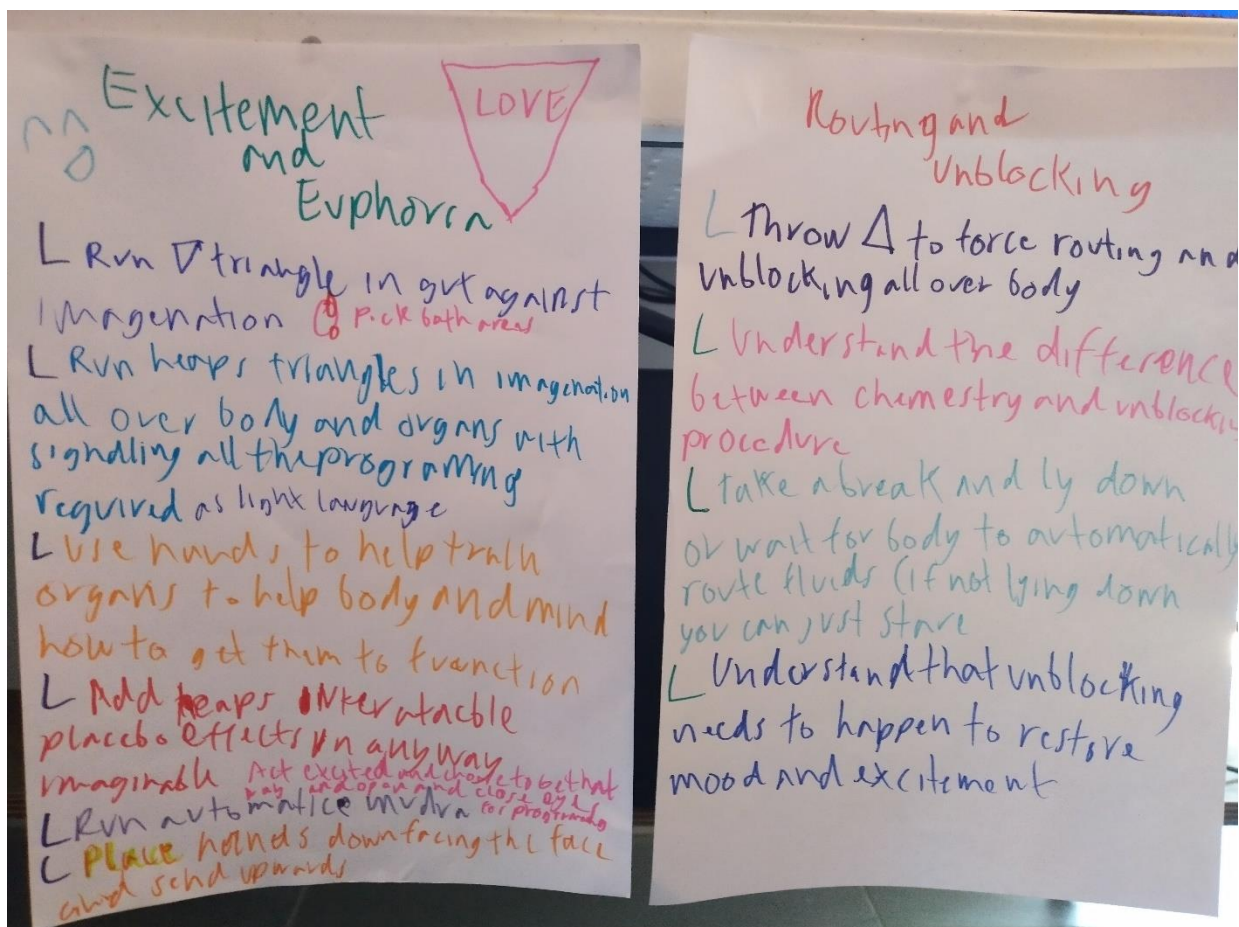 Excitement
and
Euphoria
LOVE
L Run ▽ triangle in gut against
imagenation Pick both areas
L Run heaps triangles in imagenation
all over body and organs with
signalling all the programing
required as light language
L Use hands to help train
organs to help body and mind
how to get them to function
L Add heaps
placebo effects in anyway
imaginable Act excited and chose to be that
way and open and close eyes
L Run automatice mudra for programing
L Place hands down facing the face
and send upwards
Routing and
Unblocking
L Throw △ to force routing and
unblocking all over body
L Understand the difference
between chemestry and
procedure
L take a break and ly down
or wait for body to automatically
route fluids (if not lying down
you can just stare
L Understand that unblocking
needs to happen to restore
mood and excitement